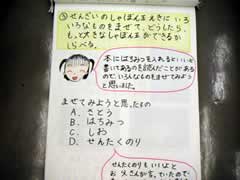 ③せんざいのしゃぼん玉えきにいろ
いろなものをまぜて、どうしたら、
もっと大きなしゃぼん玉ができるか
しらべる。
本にはちみつを入れるといいと
書いてあるのを読んだことがある
ので、いろんなものをまぜてみよう
と思いました。
まぜてみようと思ったもの
A. さとう
B. はちみつ
C. しお
D. せんたくのり
せんたくのりもいいよと
お父さんが言っていたので